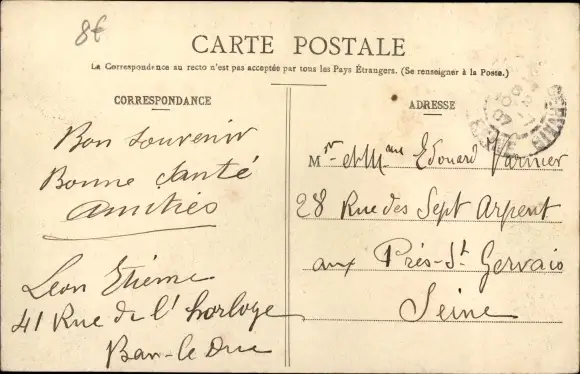 8€
CARTE POSTALE
La Correspondance au recto n'est pas acceptée par tous les Pays Étrangers. (Se renseigner à la Poste.)
CORRESPONDANCE
Bon souvenir
Bonne Santé
Amitiés
Léon Etienne
41 Rue de l'horloge
Bar-le Duc
ADRESSE
Mr et Mme Edouard Varnier
28 Rue des Sept Arpent
aux Prés-St Gervais
Seine